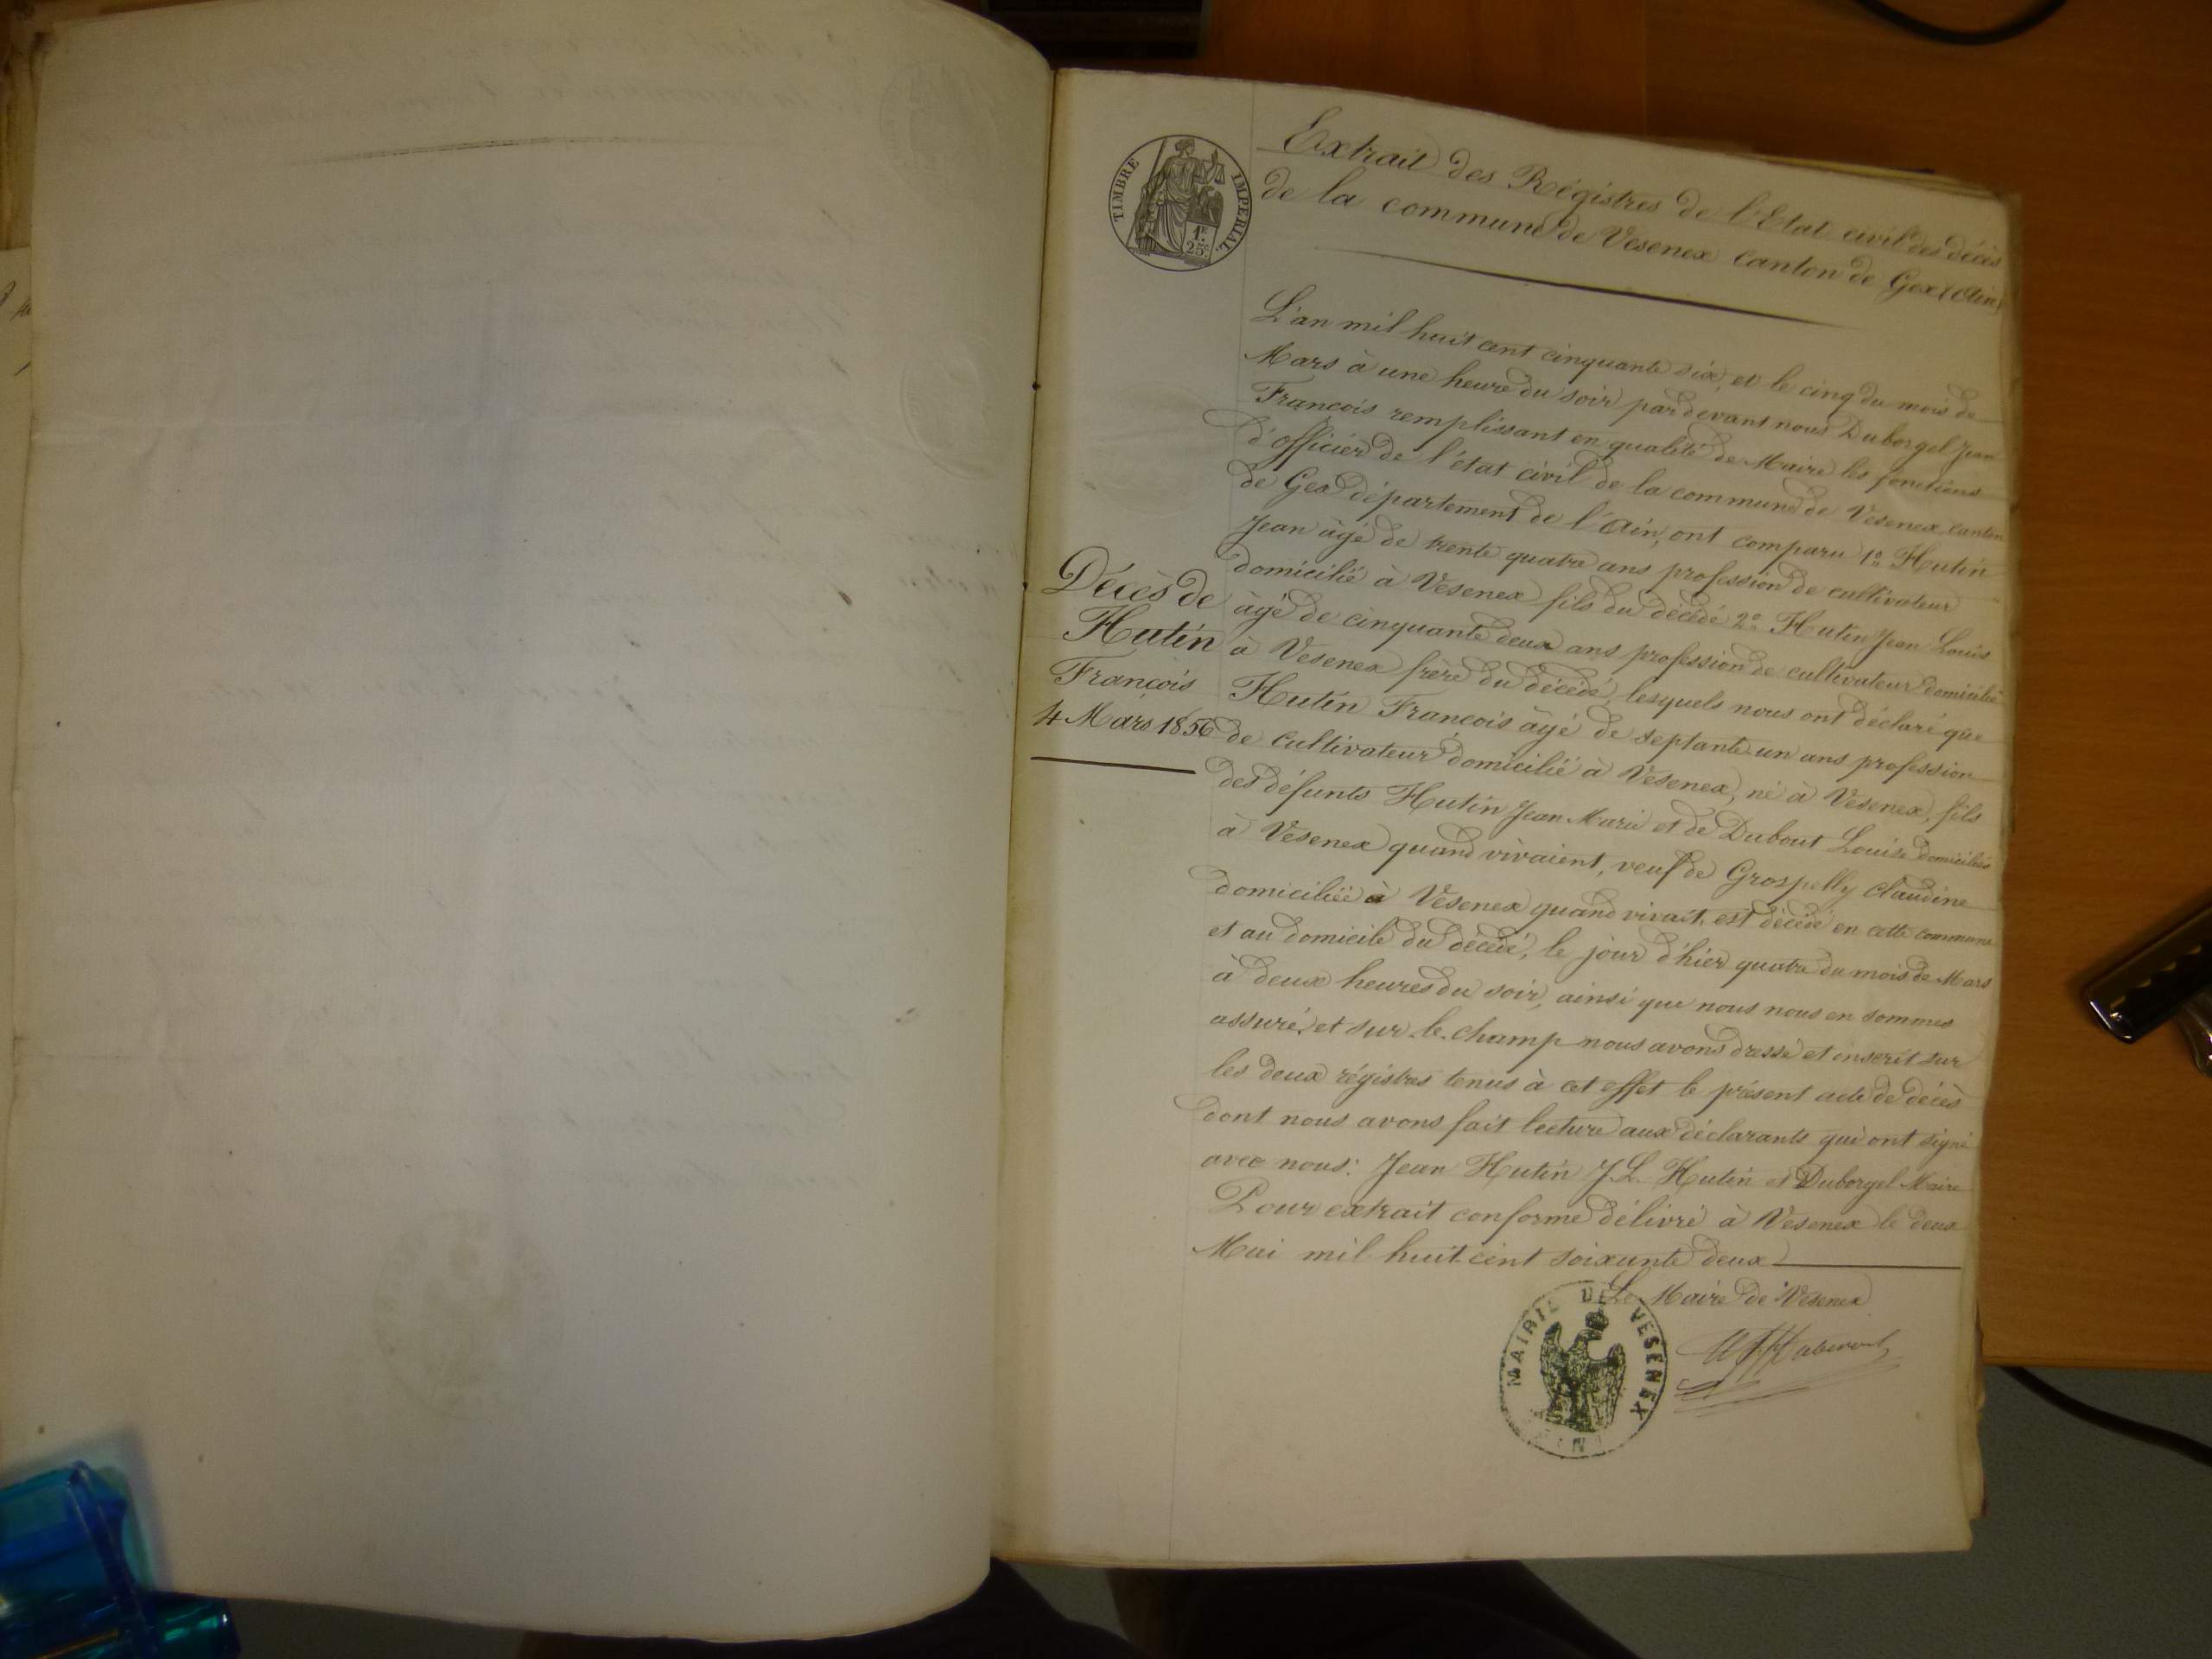 TIMBRE IMPERIAL
1F.
25c.
Extrait des Régistres de l'Etat civil des décès
de la commune de Vesenex Canton de Gex (Ain)
L'an mil huit cent cinquante six, et le cinq du mois de
Mars à une heure du soir par devant nous Duborgel Jean
François remplissant en qualité de Maire les fonctions
d'officier de l'état civil de la commune de Vesenex, canton
de Gex département de l'Ain, ont comparu 1º Hutin
Jean âgé de trente quatre ans profession de cultivateur
domicilié à Vesenex fils du décédé 2º Hutin Jean Louis
âgé de cinquante deux ans profession de cultivateur domicilié
à Vesenex frère du décédé, lesquels nous ont déclaré que
Hutin François âgé de septante un ans profession
de cultivateur domicilié à Vesenex, né à Vesenex, fils
des défunts Hutin Jean Marie et de Dubout Louise domiciliés
à Vesenex quand vivaient, veuf de Grospelly Claudine
domiciliée à Vesenex quand vivait, est décédé en cette commune
et au domicile du décédé, le jour d'hier quatre du mois de Mars
à deux heures du soir, ainsi que nous nous en sommes
assuré, et sur-le-champ nous avons dressé et inscrit sur
les deux régistres tenus à cet effet le présent acte de décès
dont nous avons fait lecture aux déclarants qui ont signé
avec nous: Jean Hutin J.L. Hutin et Duborgel Maire
Pour extrait conforme délivré à Vesenex le deux
Mai mil huit cent soixante deux
Le Maire de Vesenex
Décès de
Hutin
François
4 Mars 1856
MAIRIE DE VESENEX
AIN